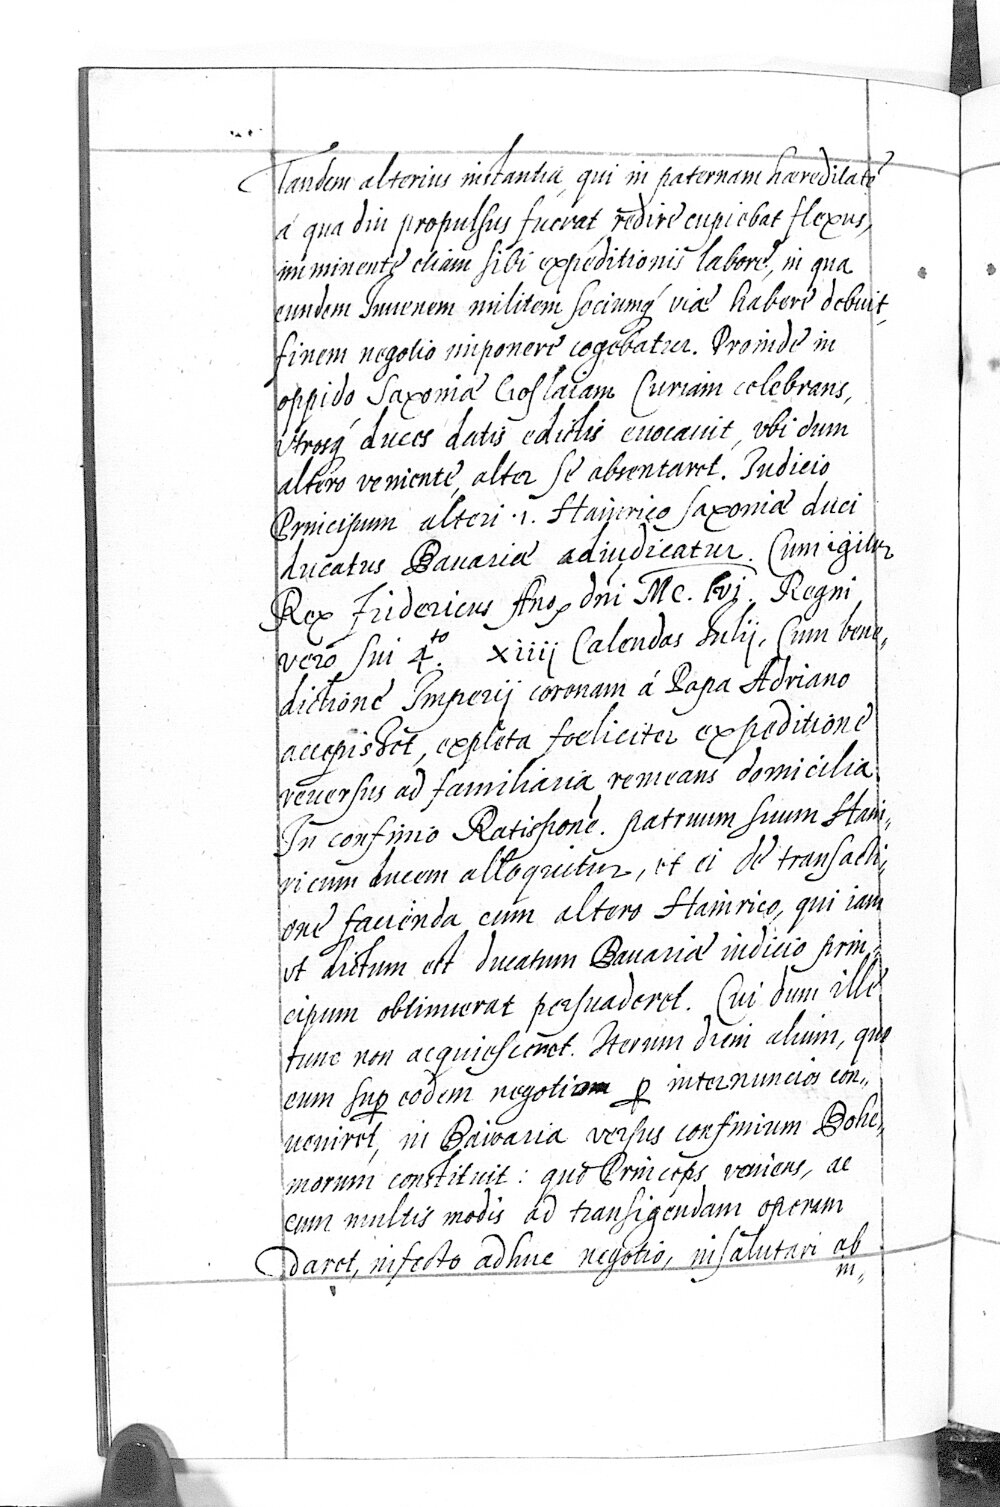 Tandem alterius instantia, qui in paternam hæreditatē
á qua diu propulsus fuerat redire cupiebat flexus,
imminente etiam sibi expeditionis labore, in qua
eundem Iuuenem militem sociumq́ viæ habere debuit,
finem negotio imponere cogebatur. Proinde in
oppido Saxoniæ Goslaiam Curiam celebrans,
vtrosq́ duces datis edictis euocauit, vbi dum
altero veniente, alter se absentaret. Iudicio
Principum alteri .i. Hainrico saxoniæ duci
ducatus Bauariæ adiudicatur. Cum igitur
Rex Fridericus Año dni Mc. lvi. Regni
vero sui 4.to xiiij Calendas Iulij. Cum bene„
dictione Imperij coronam á Papa Adriano
accepisset, expleta foeliciter expeditione
reuersus ad familiaria remeans domicilia.
In confinio Ratispone. patruum suum Hain„
ricum ducem alloquitur, et ei de transacti„
one facienda cum altero Hainrico, qui iam
vt dictum est ducatum Bauariæ iudicio prin„
cipum obtinuerat persuaderet. Cui dum ille
tunc non acquiesceret. Iterum diem alium, quo
eum suꝑ eodem negotiom ꝑ internuncios con„
ueniret, in Baiwaria versus confinium Bohe„
morum constituit: quo Princeps veniens, ac
cum multis modis ad transigendam operam
daret, infecto adhuc negotio, insalutari ab
in„